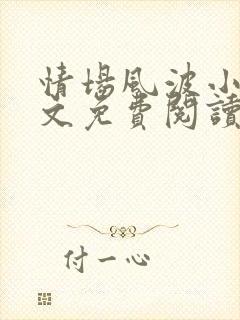 情場風波小
文免費閱讀
付一心